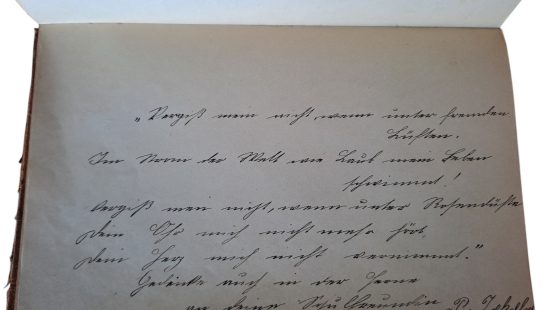 „Vergiß mein nicht, wenn unter fremden
Lüften.
Im Strom der Welt wie Laub mein Leben
schwimmt!
Vergiß mein nicht, wenn unter Rosendüfte
Dein Ohr mich nicht mehr hört,
Dein Herz mich nicht vernimmt.“
Gedenke auch in der Ferne
an deine Schulfreundin